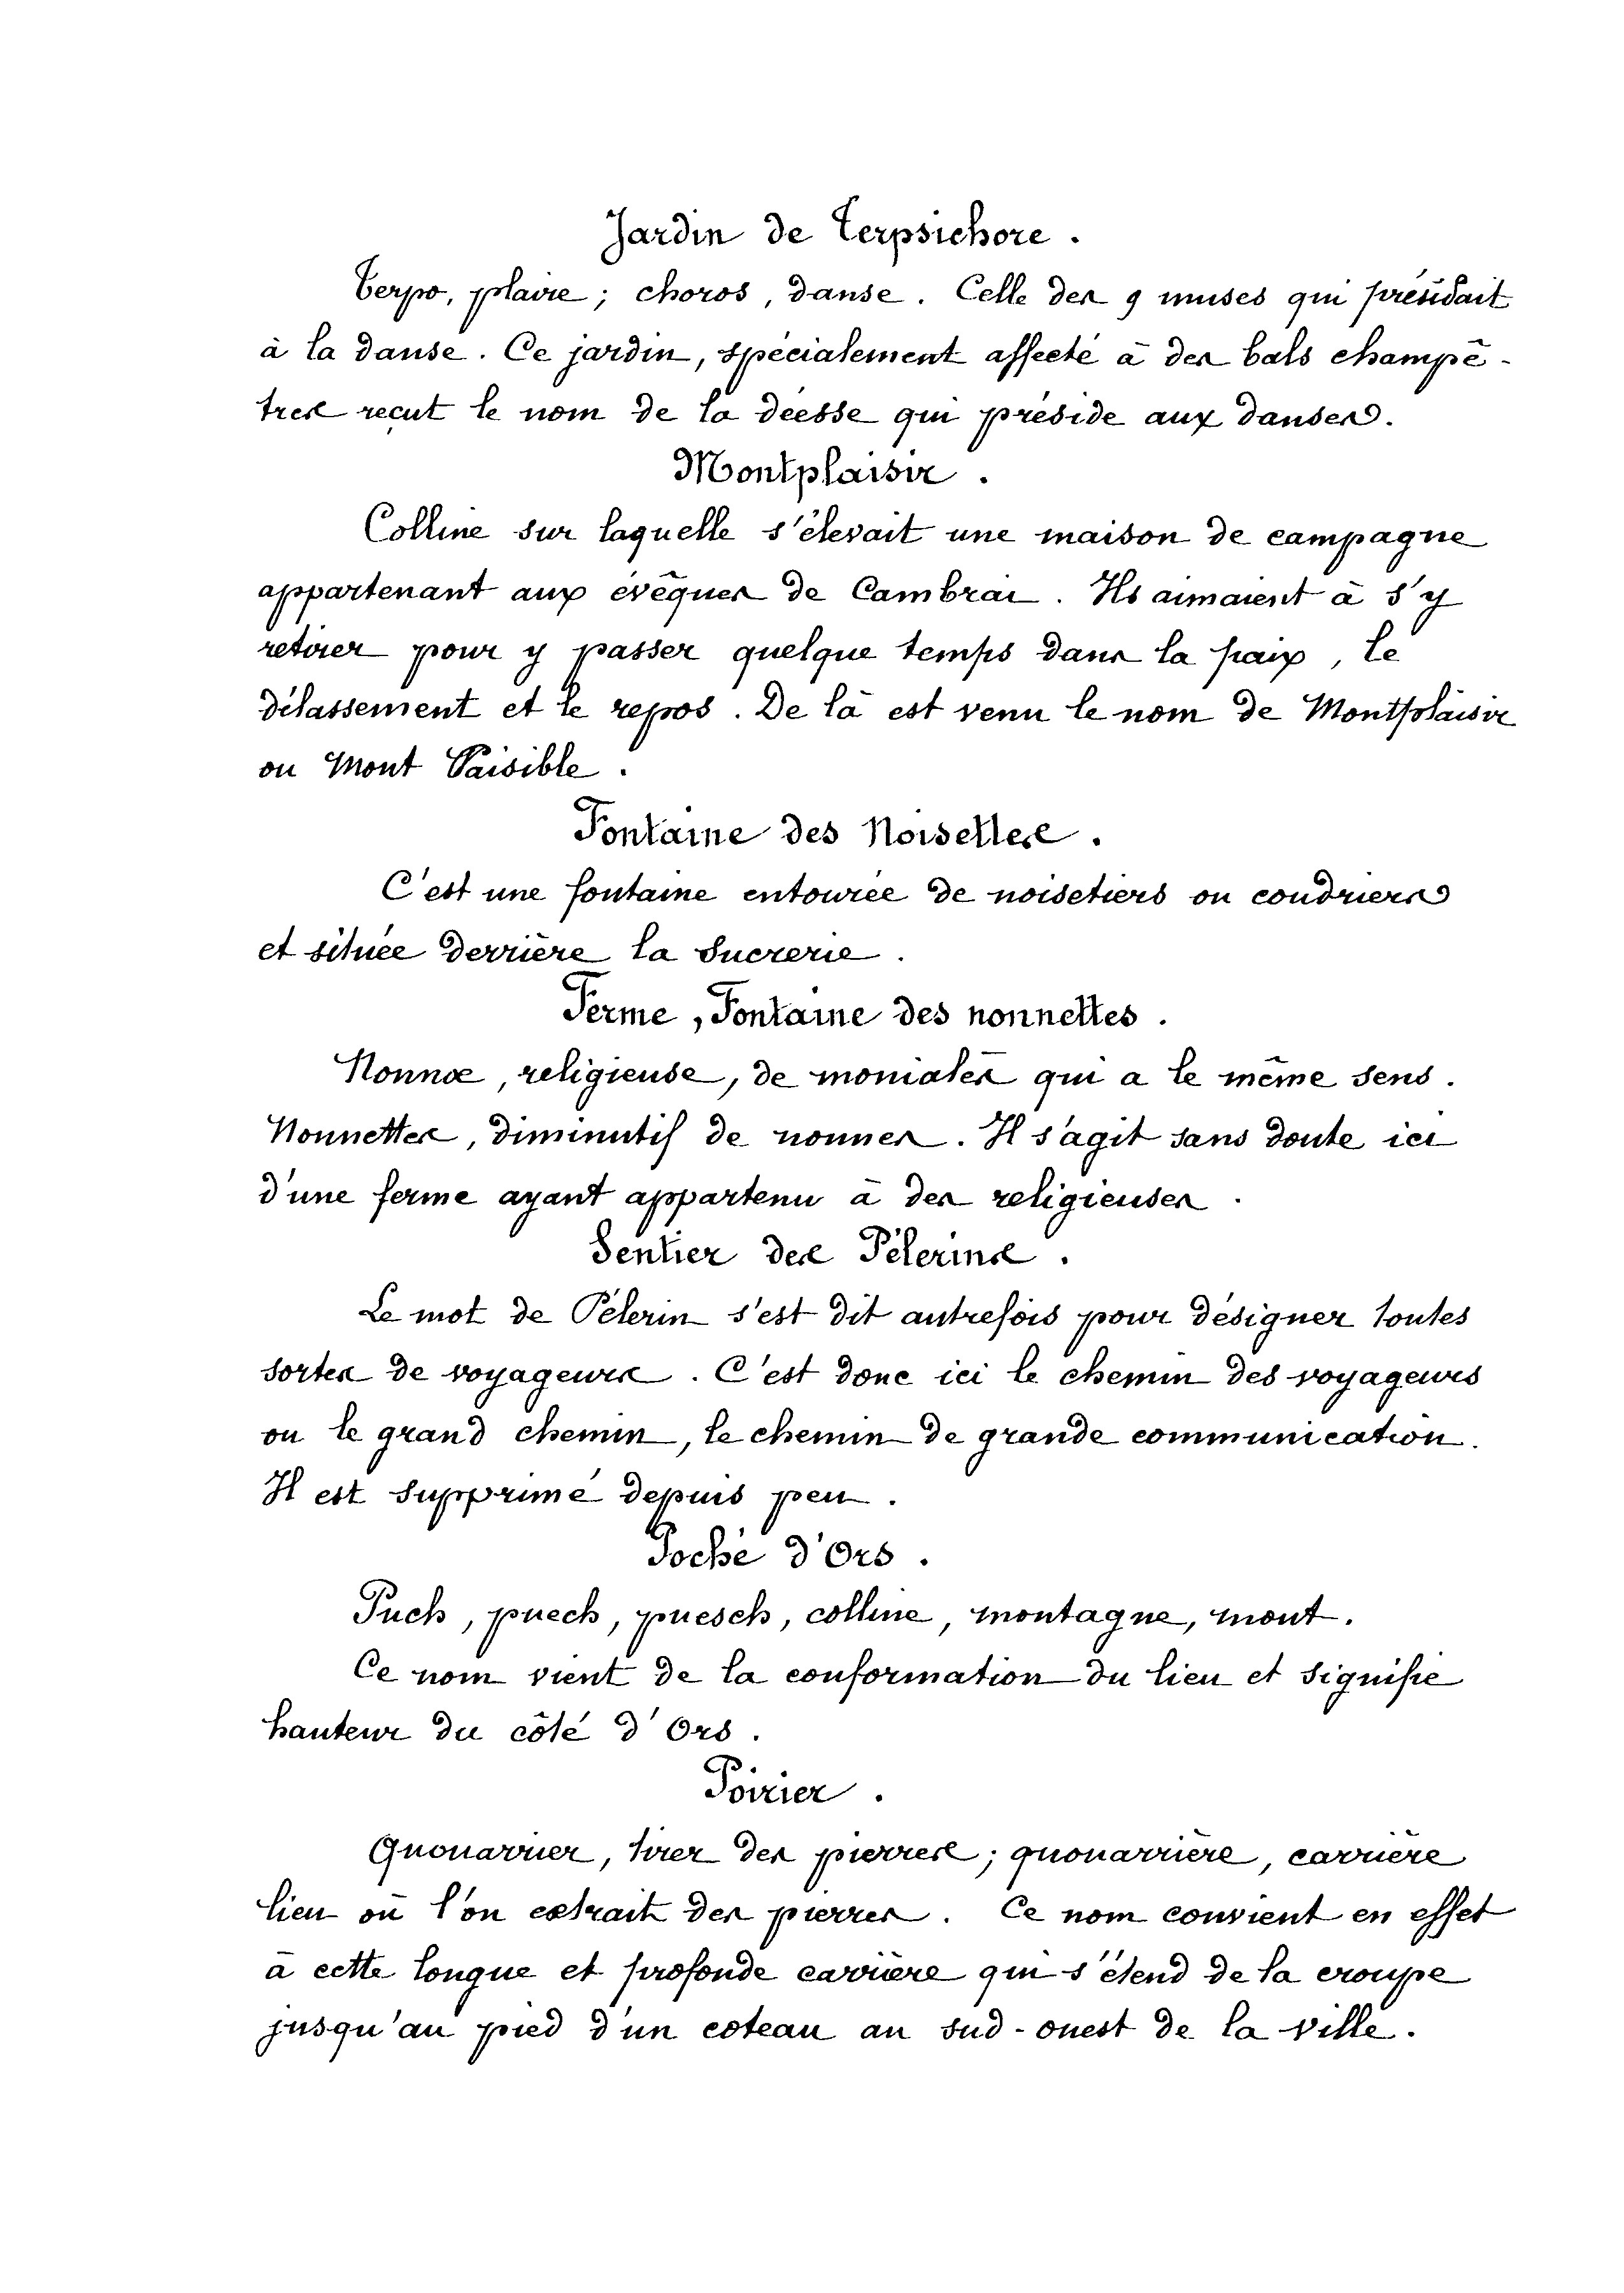 Jardin de Terpsichore.
Terpo, plaire; choros, danse. Celle des 9 muses qui présidait
à la danse. Ce jardin, spécialement affecté à des bals champê-
tres reçut le nom de la déesse qui préside aux danses.
Montplaisir.
Colline sur laquelle s'élevait une maison de campagne
appartenant aux évêques de Cambrai. Ils aimaient à s'y
retirer pour y passer quelque temps dans la paix, le
délassement et le repos. De là est venu le nom de Montplaisir
ou Mont Paisible.
Fontaine des Noisettes.
C'est une fontaine entourée de noisetiers ou coudriers
et située derrière la Sucrerie.
Ferme, Fontaine des nonnettes.
Nonnoe, religieuse, de moniales qui a le même sens.
Nonnettes, diminutif de nonnes. Il s'agit sans doute ici
d'une ferme ayant appartenu à des religieuses.
Sentier des Pélerins.
Le mot de Pélerin s'est dit autrefois pour désigner toutes
sortes de voyageurs. C'est donc ici le chemin des voyageurs
ou le grand chemin, le chemin de grande communication.
Il est supprimé depuis peu.
Poche d'Ors.
Puch, puech, puesch, colline, montagne, mont.
Ce nom vient de la conformation du lieu et signifie
hauteur du côté d'Ors.
Poirier.
Quouarrier, tirer des pierres; quouarrière, carrière
lieu où l'on extrait des pierres. Ce nom convient en effet
à cette longue et profonde carrière qui s'étend de la croupe
jusqu'au pied d'un coteau au sud-ouest de la ville.